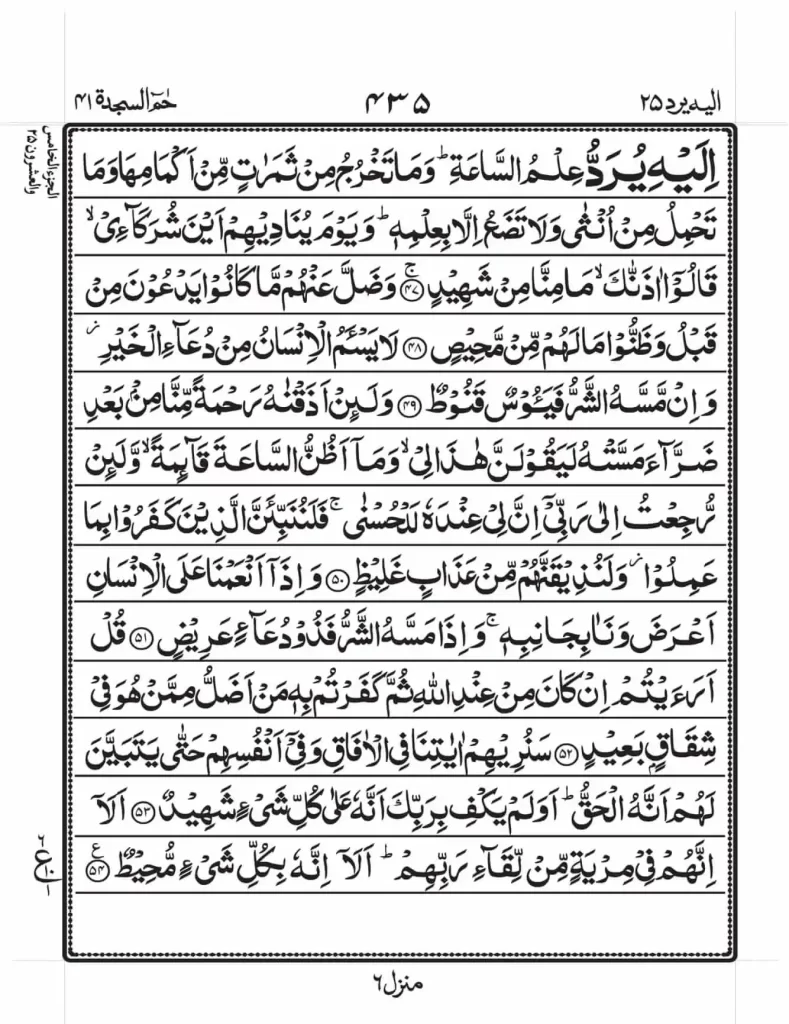 اليه يرد ٢٥ ٤٣٥ حٰمٓ السجدة ٤١
الجزء الخامس والعشرون ٢٥
اِلَيْهِ يُرَدُّ عِلْمُ السَّاعَةِ ؕ وَمَا تَخْرُجُ مِنْ ثَمَرٰتٍ مِّنْ اَكْمَامِهَا وَمَا
تَحْمِلُ مِنْ اُنْثٰى وَلَا تَضَعُ اِلَّا بِعِلْمِهٖ ؕ وَيَوْمَ يُنَادِيْهِمْ اَيْنَ شُرَكَآءِيْ ۙ
قَالُوْۤا اٰذَنّٰكَ ۙ مَا مِنَّا مِنْ شَهِيْدٍ ۚ ﴿٤٧﴾ وَضَلَّ عَنْهُمْ مَّا كَانُوْا يَدْعُوْنَ مِنْ
قَبْلُ وَظَنُّوْا مَا لَهُمْ مِّنْ مَّحِيْصٍ ﴿٤٨﴾ لَا يَسْـَٔمُ الْاِنْسَانُ مِنْ دُعَآءِ الْخَيْرِ ؗ
وَاِنْ مَّسَّهُ الشَّرُّ فَيَـُٔوْسٌ قَنُوْطٌ ﴿٤٩﴾ وَلَىِٕنْ اَذَقْنٰهُ رَحْمَةً مِّنَّا مِنْۢ بَعْدِ
ضَرَّآءَ مَسَّتْهُ لَيَقُوْلَنَّ هٰذَا لِيْ ۙ وَمَاۤ اَظُنُّ السَّاعَةَ قَآىِٕمَةً ۙ وَّلَىِٕنْ
رُّجِعْتُ اِلٰى رَبِّيْۤ اِنَّ لِيْ عِنْدَهٗ لَلْحُسْنٰى ۚ فَلَنُنَبِّئَنَّ الَّذِيْنَ كَفَرُوْا بِمَا
عَمِلُوْا ؗ وَلَنُذِيْقَنَّهُمْ مِّنْ عَذَابٍ غَلِيْظٍ ﴿٥٠﴾ وَاِذَاۤ اَنْعَمْنَا عَلَى الْاِنْسَانِ
اَعْرَضَ وَنَاٰ بِجَانِبِهٖ ۚ وَاِذَا مَسَّهُ الشَّرُّ فَذُوْ دُعَآءٍ عَرِيْضٍ ﴿٥١﴾ قُلْ
اَرَءَيْتُمْ اِنْ كَانَ مِنْ عِنْدِ اللّٰهِ ثُمَّ كَفَرْتُمْ بِهٖ مَنْ اَضَلُّ مِمَّنْ هُوَ فِيْ
شِقَاقٍۭ بَعِيْدٍ ﴿٥٢﴾ سَنُرِيْهِمْ اٰيٰتِنَا فِي الْاٰفَاقِ وَفِيْۤ اَنْفُسِهِمْ حَتّٰى يَتَبَيَّنَ
لَهُمْ اَنَّهُ الْحَقُّ ؕ اَوَلَمْ يَكْفِ بِرَبِّكَ اَنَّهٗ عَلٰى كُلِّ شَيْءٍ شَهِيْدٌ ﴿٥٣﴾ اَلَاۤ
اِنَّهُمْ فِيْ مِرْيَةٍ مِّنْ لِّقَآءِ رَبِّهِمْ ؕ اَلَاۤ اِنَّهٗ بِكُلِّ شَيْءٍ مُّحِيْطٌ ﴿٥٤﴾ ع
منزل ٦